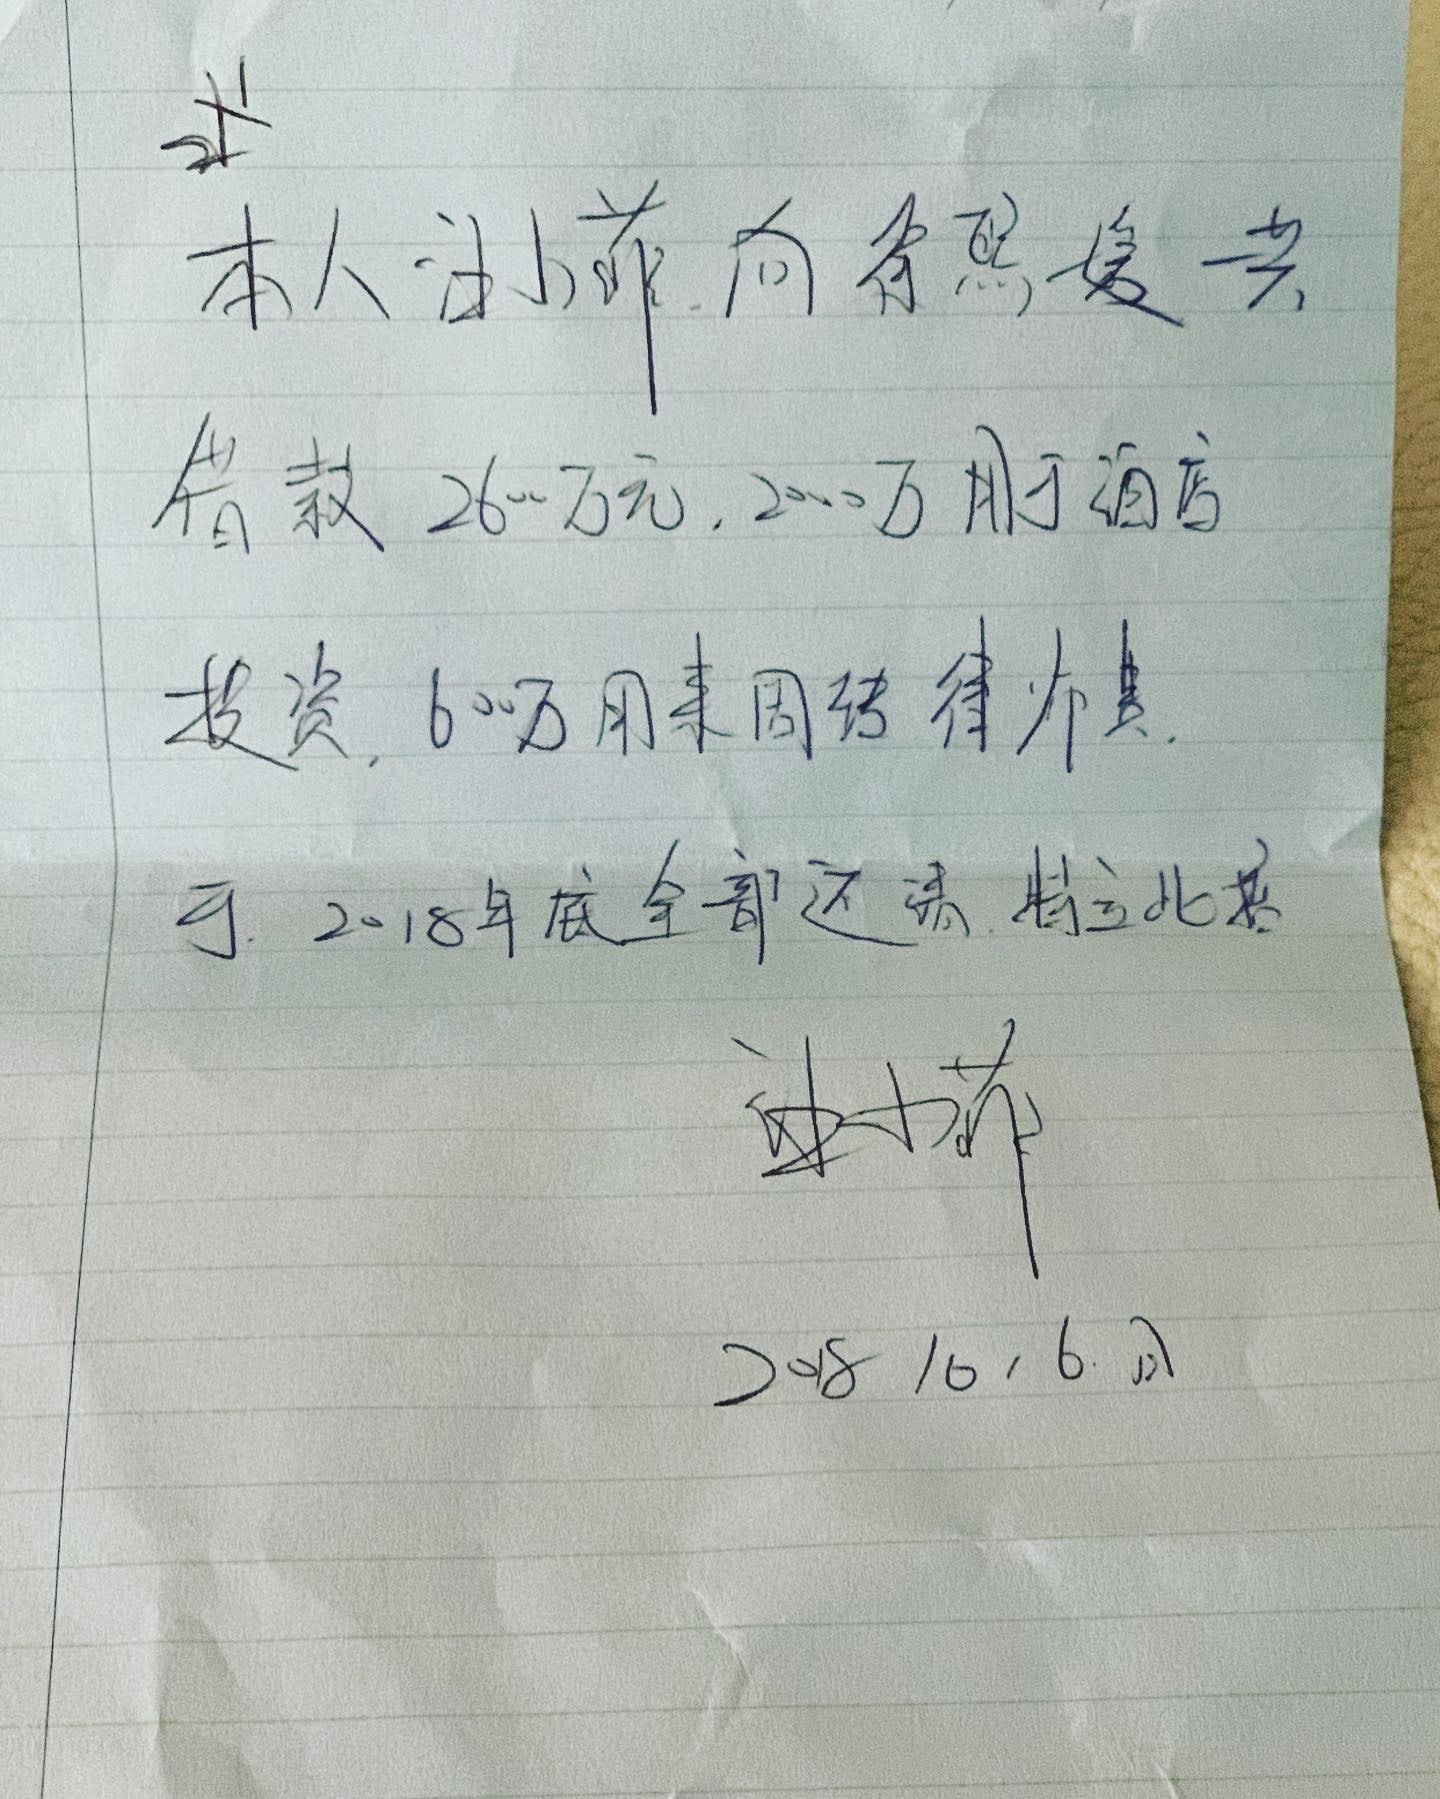 本人汪小菲向徐熙媛共
借款2600万元.2000万用于酒店
投资.600万用来周转律师费.
于.2018年底全部还清.特立此据
汪小菲
2018 10,6.